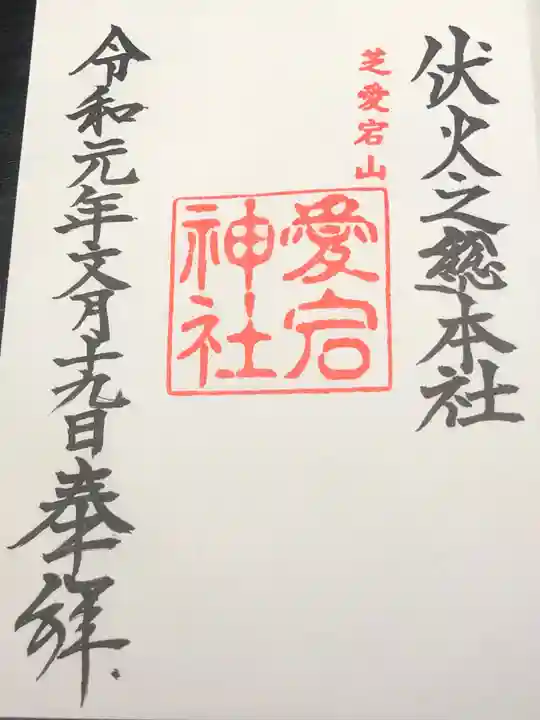 伏火之總本社
芝愛宕山
愛宕
神社
令和元年文月十九日奉拝